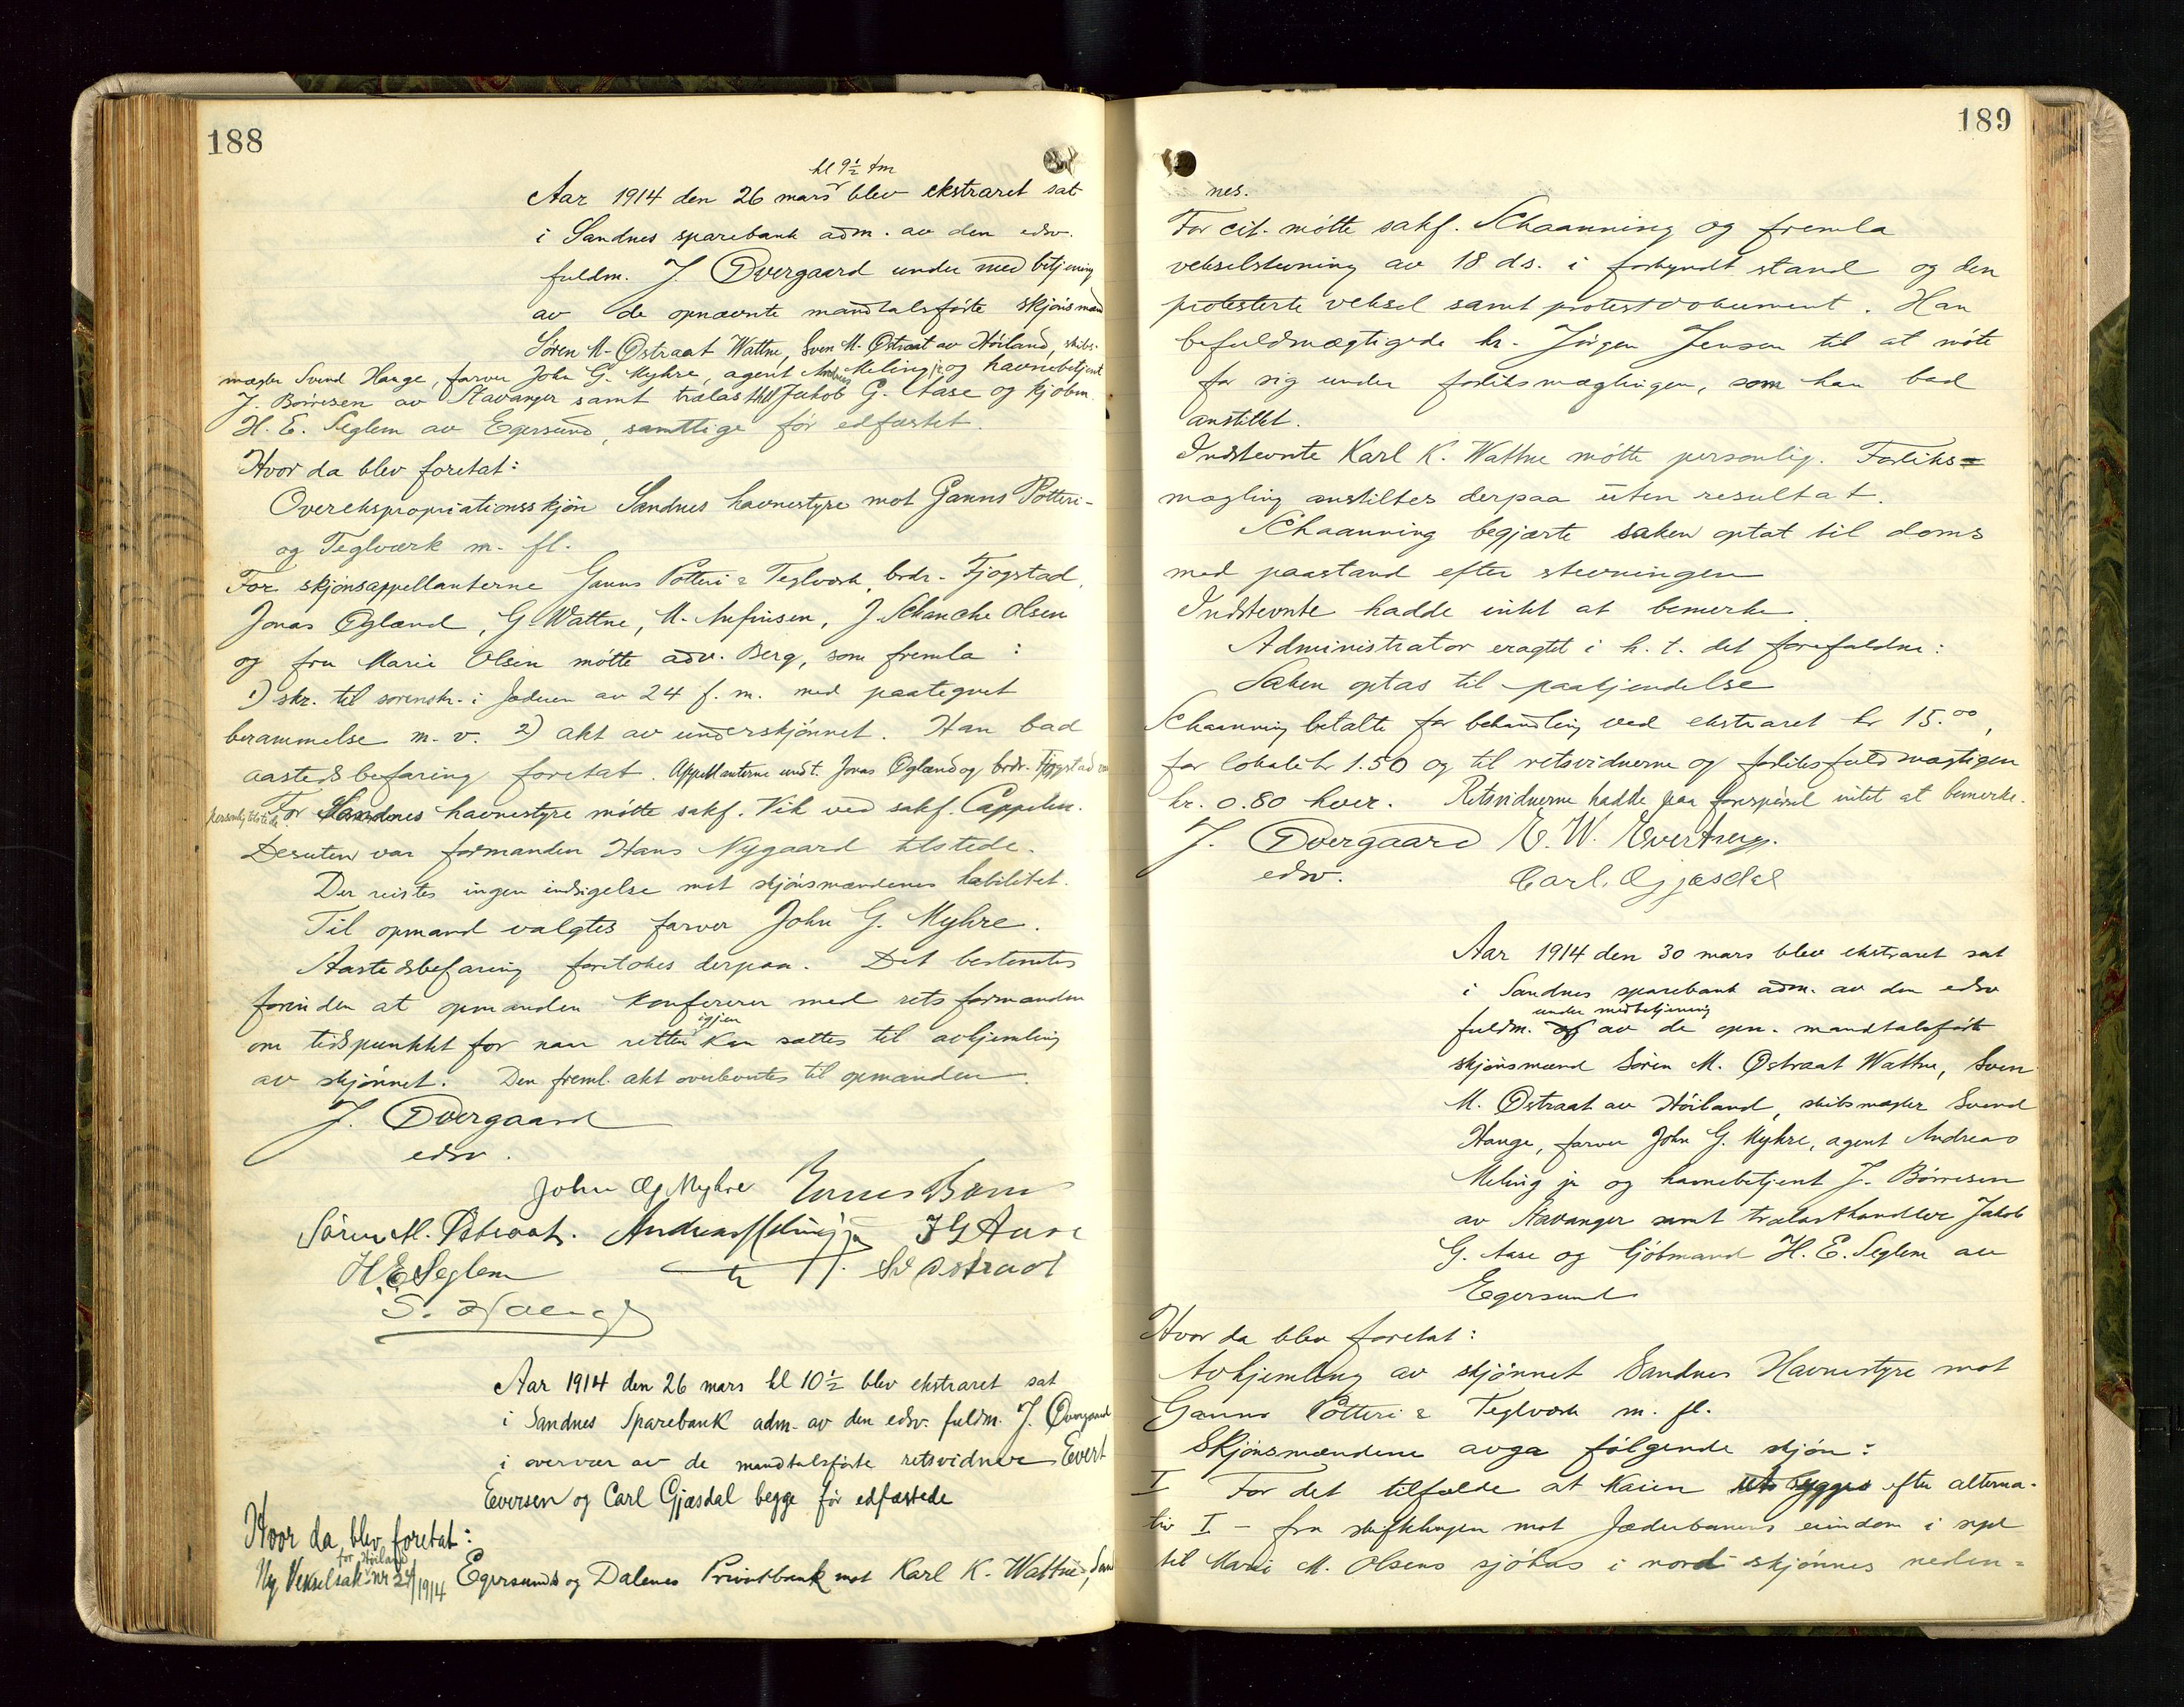 188
kl 9½ fm
Aar 1914 den 26 mars blev ekstraret sat
i Sandnes sparebank adm. av den edsv.
fuldm. J. Øvergaard under med betjening
av de opnævnte mandtalsførte skjønsmænd
Søren M. Østraat Wattne, Sven M. Østraat av Høiland, skibs-
mægler Svend Hauge, farver John G. Myhre, agent Andreas Meling jr. og havnebetjent
J. Børresen av Stavanger samt trælasthdl Jakob G. Aase og kjøbm.
H. E. Seglem av Egersund, samtlige før edfæstet.
Hvor da blev foretat:
Overekspropriationsskjøn Sandnes havnestyre mot Ganns Potteri-
og Teglværk m. fl.
For skjønsappellanterne Ganns Potteri & Teglværk, brdr. Fjogstad,
Jonas Øglænd, G. Wattne, M. Anfinsen, J. Schanche Olsen
og fru Marie Olsen møtte adv. Berg, som fremla:
1) skr. til sorenskr. i Jæderen av 24 f. m. med paategnet
berammelse m. v. 2) akt av underskjønnet. Han bad
aastedsbefaring foretat. Appellanterne undt. Jonas Øglænd og brdr. Fjogstad var
personlig tilstede. For Sandnes havnestyre møtte sakf. Vik ved sakf. Cappelen.
Desuten var formanden Hans Nygaard tilstede.
Der reistes ingen indsigelse mot skjønsmændenes habilitet.
Til opmand valgtes farver John G. Myhre.
Aastedsbefaring foretokes derpaa. Det bestemtes
forinden at opmanden konfererer med retsformanden
om tidspunktet for naar retten igjen kan sættes til avhjemling
av skjønnet. Den freml. akt overleveredes til opmanden.
J. Øvergaard
edsv.
John G Myhre
Søren M. Østraat. Andreas Meling jr J G Aase
H. E. Seglem Sv Østraat
S. Hauge
Aar 1914 den 26 mars kl 10½ blev ekstraret sat
i Sandnes Sparebank adm. av den edsv. fuldm. J. Øvergaard
i overvær av de mandtalsførte retsvidner Evert
Eversen og Carl Gjæsdal begge før edfæstede
Hvor da blev foretat:
for Høiland
Ny Vekselsak nr 24/1914 Egersunds og Dalenes Privatbank mot Karl K. Wattne, Sand
189
nes.
For cit. møtte sakf. Schaanning og fremla
vekselstevning av 18 ds. i forkyndt stand og den
protesterte veksel samt protestdokument. Han
befuldmægtigede hr. Jørgen Jensen til at møte
for sig under forliksmæglingen, som han bad
anstillet.
Indstevnte Karl K. Wattne møtte personlig. Forliks=
mægling anstiltes derpaa uten resultat.
Schaanning begjærte saken optat til doms
med paastand efter stevningen
Indstevnte hadde intet at bemerke.
Administrator eragtet i h. t. det forefaldne:
Saken optas til paakjendelse
Schaanning betalte for behandling ved ekstraret kr 15.00,
for lokale kr 1.50 og til retsvidnerne og forliksfuldmægtigen
kr. 0.80 hver. Retsvidnerne hadde paa forespørsel intet at bemerke.
J. Øvergaard
edsv.
Carl. Gjæsdal
Aar 1914 den 30 mars blev ekstraret sat
i Sandnes sparebank adm. av den edsv
under medbetjening
fuldm. og av de opn. mandtalsførte
skjønsmænd Søren M. Østraat Wattne, Sven
M. Østraat av Høiland, skibsmægler Svend
Hauge, farver John G. Myhre, agent Andreas
Meling jr og havnebetjent J. Børresen
av Stavanger samt trælasthandler Jakob
G. Aase og kjøbmand H. E. Seglem av
Egersund
Hvor da blev foretat:
Avhjemling av skjønnet Sandnes Havnestyre mot
Ganns Potteri & Teglværk m. fl.
Skjønsmændene avga følgende skjøn:
I For det tilfælde at kaien bygges efter alterna-
tiv I – fra mot Jæderbanens eiendom i syd
til Marie M. Olsens sjøhus i nord – skjønnes neden=